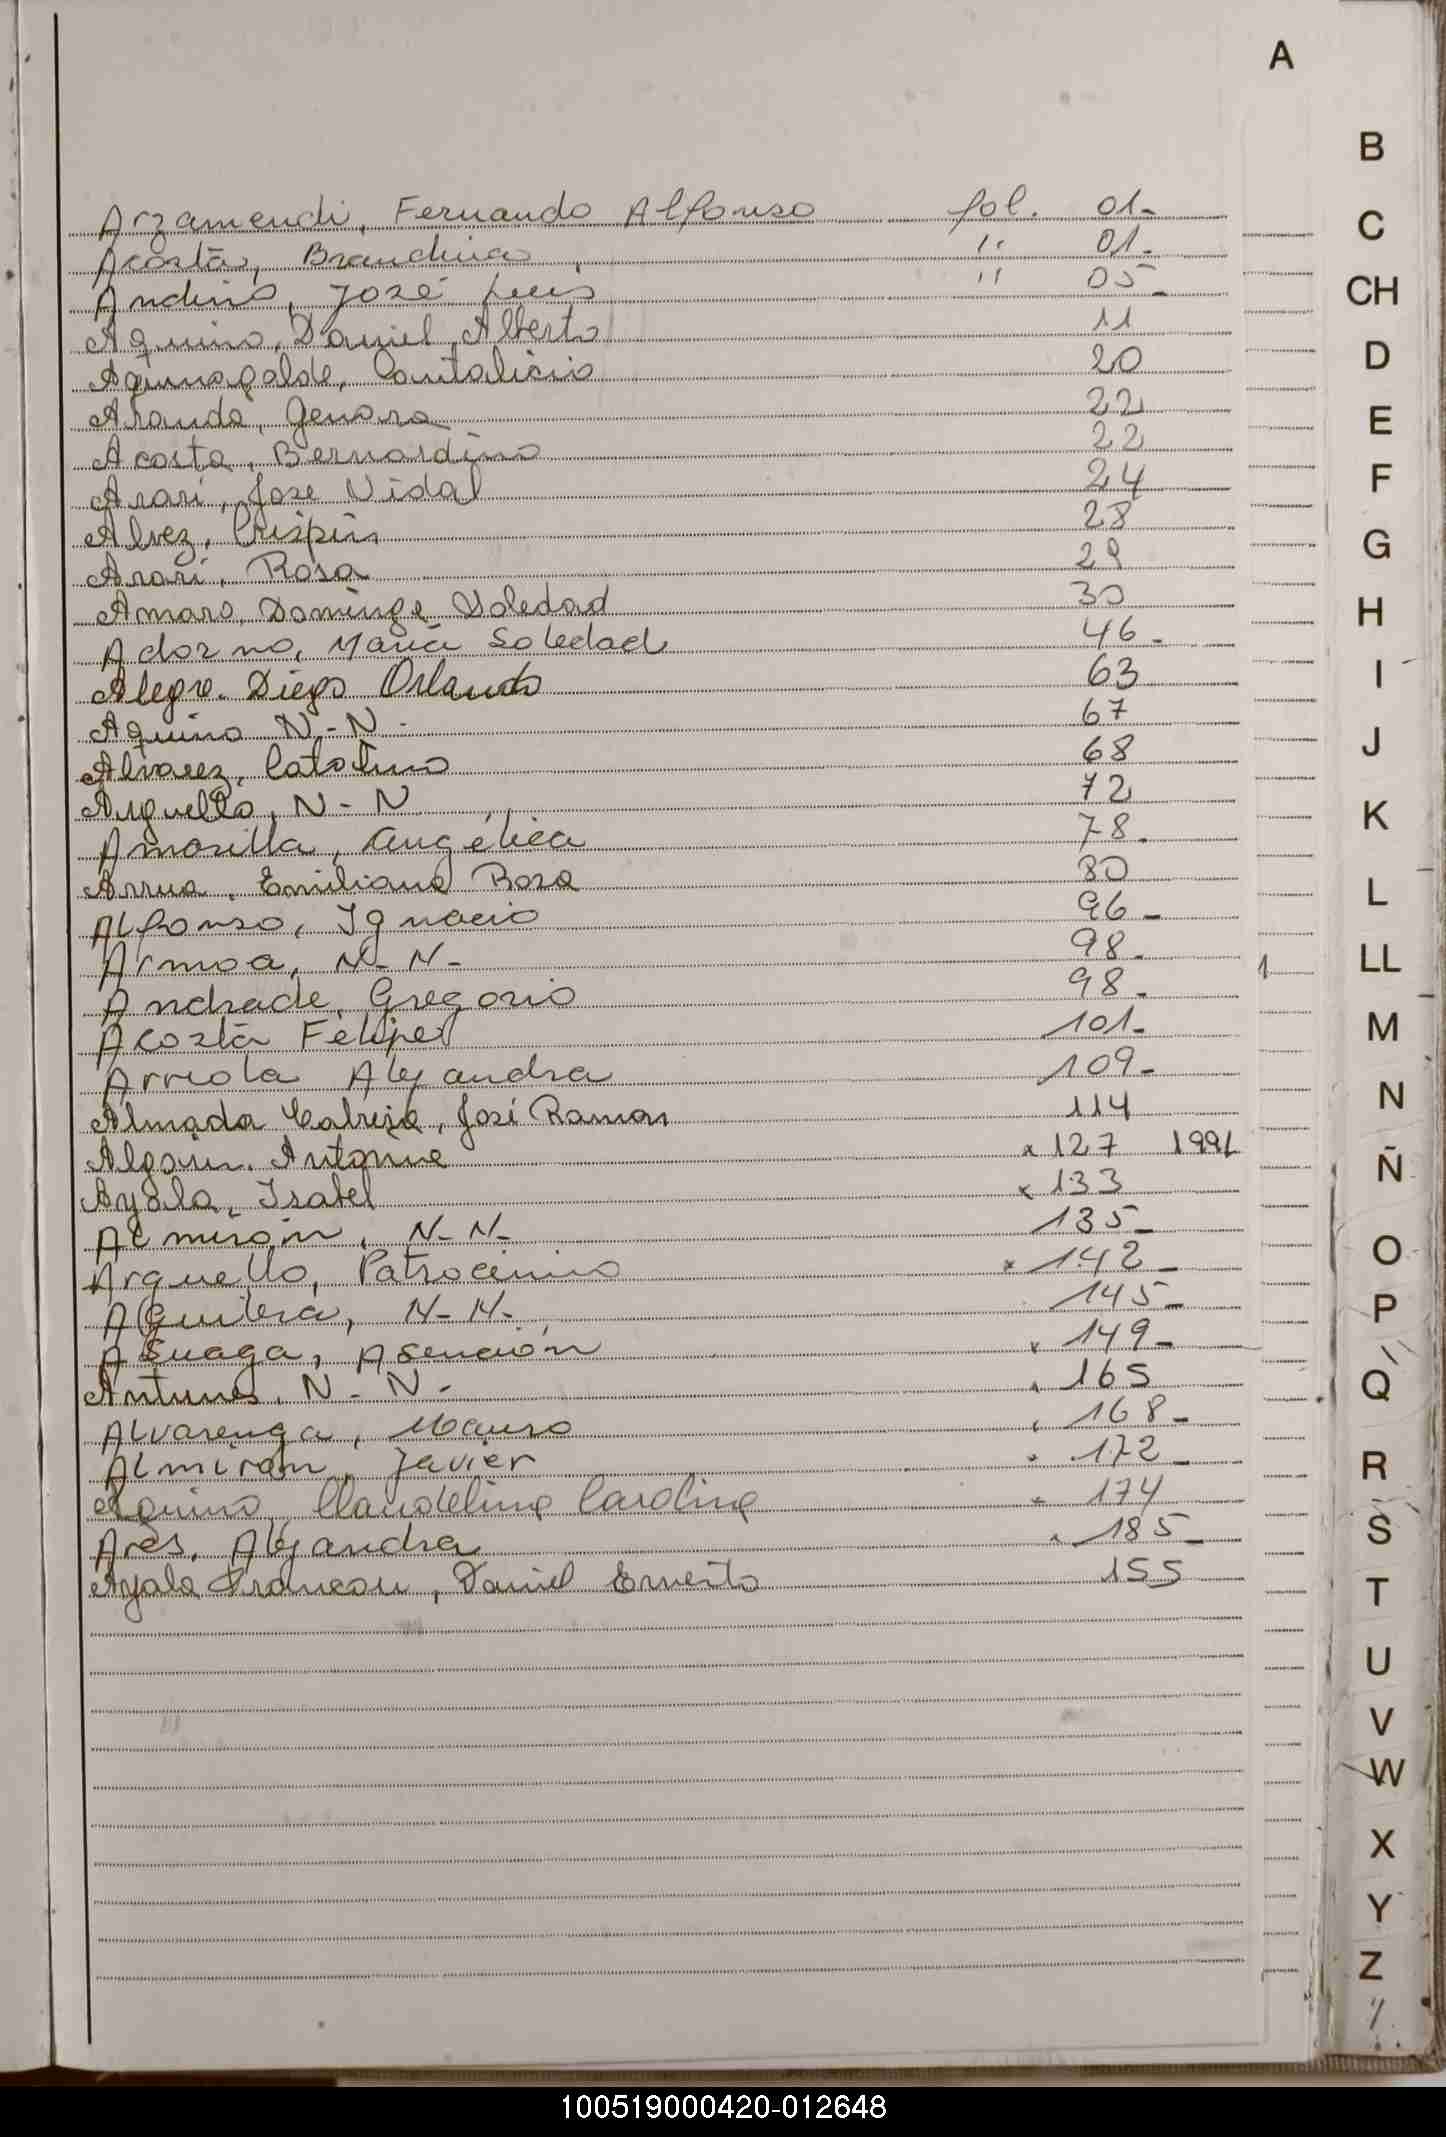 A
Arzamendi, Fernando Alfonso fol. 01-
Acosta, Brandina " 01-
Andino, José Luis " 05-
Aquino, Daniel Alberto 11
Aguinagalde, Contalicio 20
Aranda, Genara 22
Acosta, Bernardino 22
Arari, Jose Vidal 24
Alvez, Crispin 28
Arari, Rosa 29
Amaro, Dominga Soledad 30
Adorno, Maria Soledad 46-
Alegre. Diego Orlando 63
Aquino N.-N. 67
Alvarez, Catalino 68
Arguello, N-N 72
Amarilla, Angélica 78-
Arrua, Emiliana Rosa 80
Alfonso, Ignacio 96-
Armoa, N-N- 98-
Andrade, Gregorio 98-
Acosta Felipe 101-
Arriola Alejandra 109-
Almada Cabreja, José Ramon 114
Antonia x 127 1991
Ayala, Isabel x 133
Almirón, N-N- 135-
Arguello, Patrocinio x 142-
Aguilera, N-N- 145-
Asuaga, Asención x 149-
Antunes, N-N- x 165
Alvarenga, Mauro x 168-
Almirón, Javier x 172-
Aquino, Claudelina Carolina x 174
Ares, Alejandra x 185-
Ayala, Daniel Ernesto 155
B
C
CH
D
E
F
G
H
I
J
K
L
LL
M
N
Ñ
O
P
Q
R
S
T
U
V
W
X
Y
Z
100519000420-012648